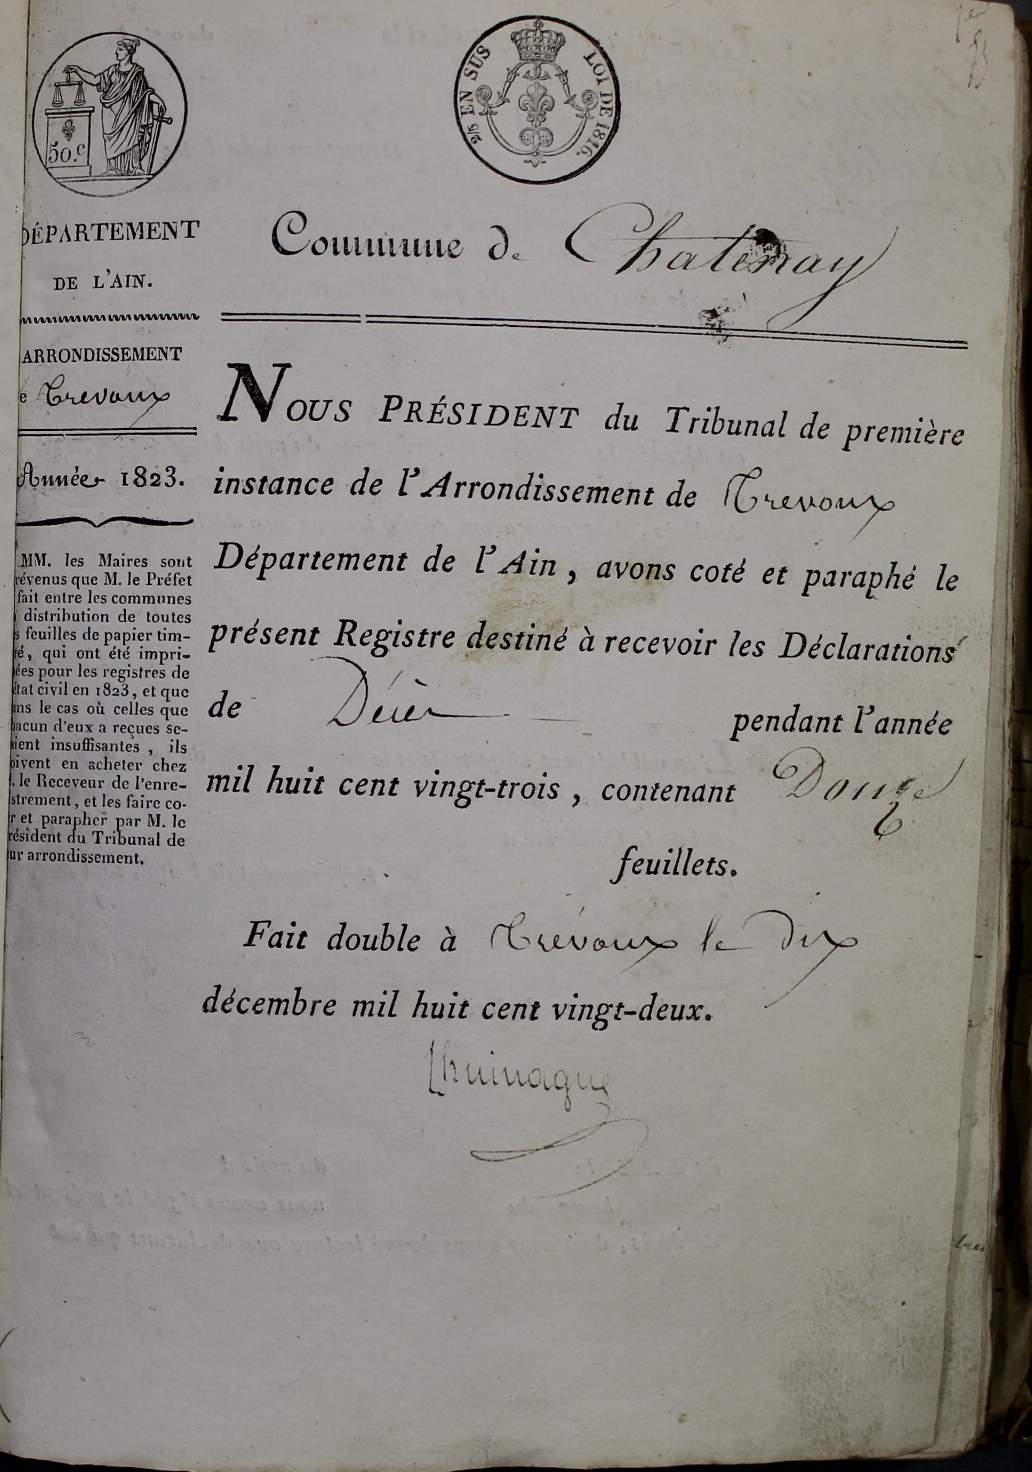 1er
50.c
2/5 EN SUS LOI DE 1816.
DÉPARTEMENT
DE L'AIN.
ARRONDISSEMENT
e Trevoux
Année 1823.
MM. les Maires sont
révenus que M. le Préfet
fait entre les communes
distribution de toutes
s feuilles de papier tim-
ré, qui ont été impri-
ées pour les registres de
état civil en 1823, et que
ans le cas où celles que
hacun d'eux a reçues se-
aient insuffisantes, ils
oivent en acheter chez
. le Receveur de l'enre-
istrement, et les faire co-
r et parapher par M. le
résident du Tribunal de
ur arrondissement.
Commune de Chatenay
NOUS PRÉSIDENT du Tribunal de première
instance de l'Arrondissement de Trevoux
Département de l'Ain, avons coté et paraphé le
présent Registre destiné à recevoir les Déclarations
de Décès pendant l'année
mil huit cent vingt-trois, contenant Douze
feuillets.
Fait double à Trévoux le dix
décembre mil huit cent vingt-deux.